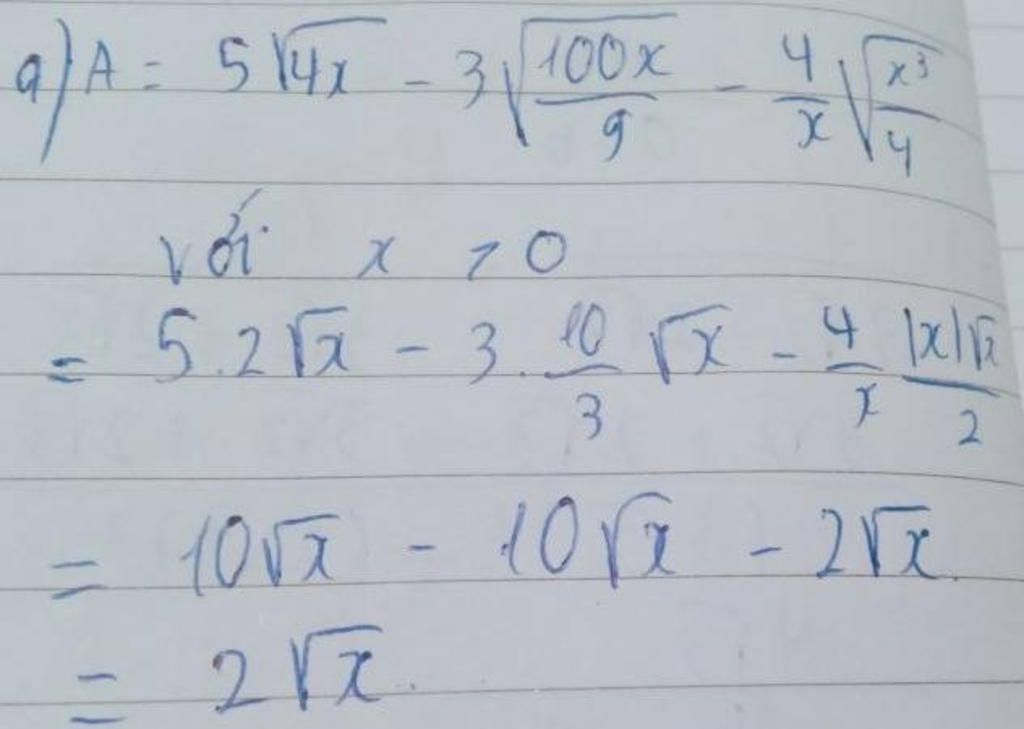 a) A = 5√(4x) - 3√(100x/9) - 4/x √(x³/4)
với x > 0
= 5.2√x - 3.10/3 √x - 4/x |x|√x/2
= 10√x - 10√x - 2√x.
= 2√x.